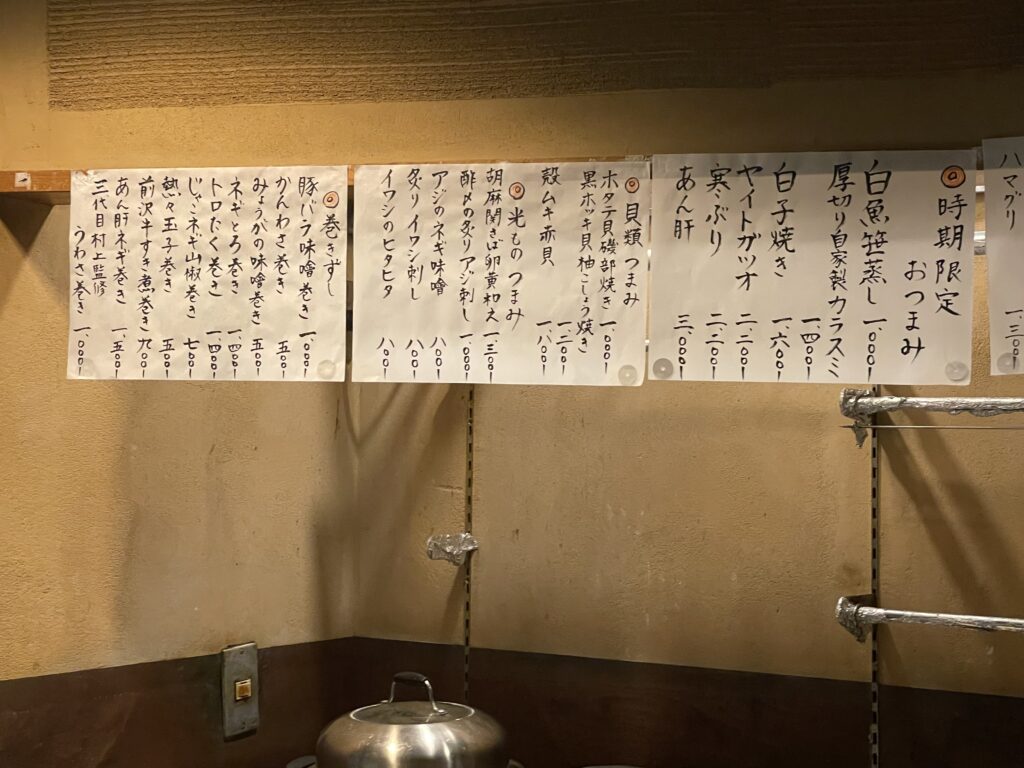 ハマグリ
一、三〇〇ー
時期限定
おつまみ
白魚笹蒸し 一、〇〇〇ー
厚切り自家製カラスミ
一、四〇〇ー
白子焼き 一、六〇〇ー
ヤイトガツオ 二、二〇〇ー
寒ぶり 二、二〇〇ー
あん肝 三、〇〇〇ー
貝類つまみ
ホタテ貝磯部焼き 一、〇〇〇ー
黒ホッキ貝柚こしょう焼き
一、二〇〇ー
殻ムキ赤貝 一、八〇〇ー
光もの つまみ
胡麻関さば卵黄和え 一、三〇〇ー
酢〆の炙りアジ刺し 一、〇〇〇ー
アジのネギ味噌 八〇〇ー
炙りイワシ刺し 八〇〇ー
イワシのヒタヒタ 八〇〇ー
巻きずし
豚バラ味噌巻き 一、〇〇〇ー
かんわさ巻き 五〇〇ー
みょうがの味噌巻き 五〇〇ー
ネギとろ巻き 一、四〇〇ー
トロたく巻き 一、四〇〇ー
じゃこネギ山椒巻き 七〇〇ー
熱々玉子巻き 五〇〇ー
前沢牛すき煮巻き 九〇〇ー
あん肝ネギ巻き 一、五〇〇ー
三代目村上監修
うわさ巻き 一、〇〇〇ー